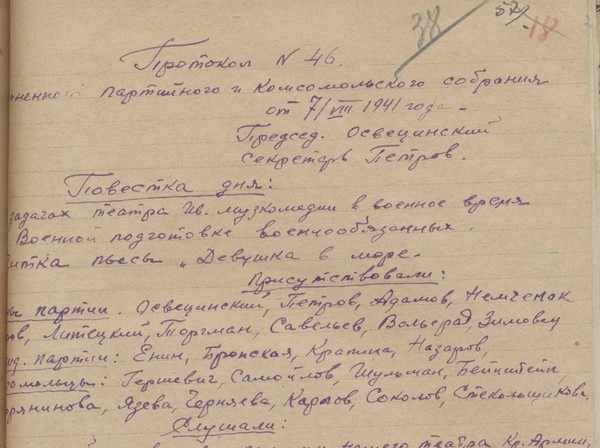 38 57 18
Протокол N 46.
ненного партийного и комсомольского собрания
от 7/VIII 1941 года.
Председ. Освецинский
секретарь Петров.
Повестка дня:
задачах театра Ив. музкомедии в военное время
Военной подготовке военнообязанных.
итка пьесы „Девушка в море.
Присутствовали:
ны партии. Освецинский, Петров, Адамов, Немченак
ров, Литецкий, Торгман, Савельев, Вольград, Зимовец
нд. партии: Енин, Бронская, Крапина, Назаров,
сомольцы: Гершевич, Самойлов, Шульман, Бейнштейн,
рянинова, Язева, Черняева, Карпов, Соколов, Стекольщикова,
Слушали:
нашего театра Кр. Армии,